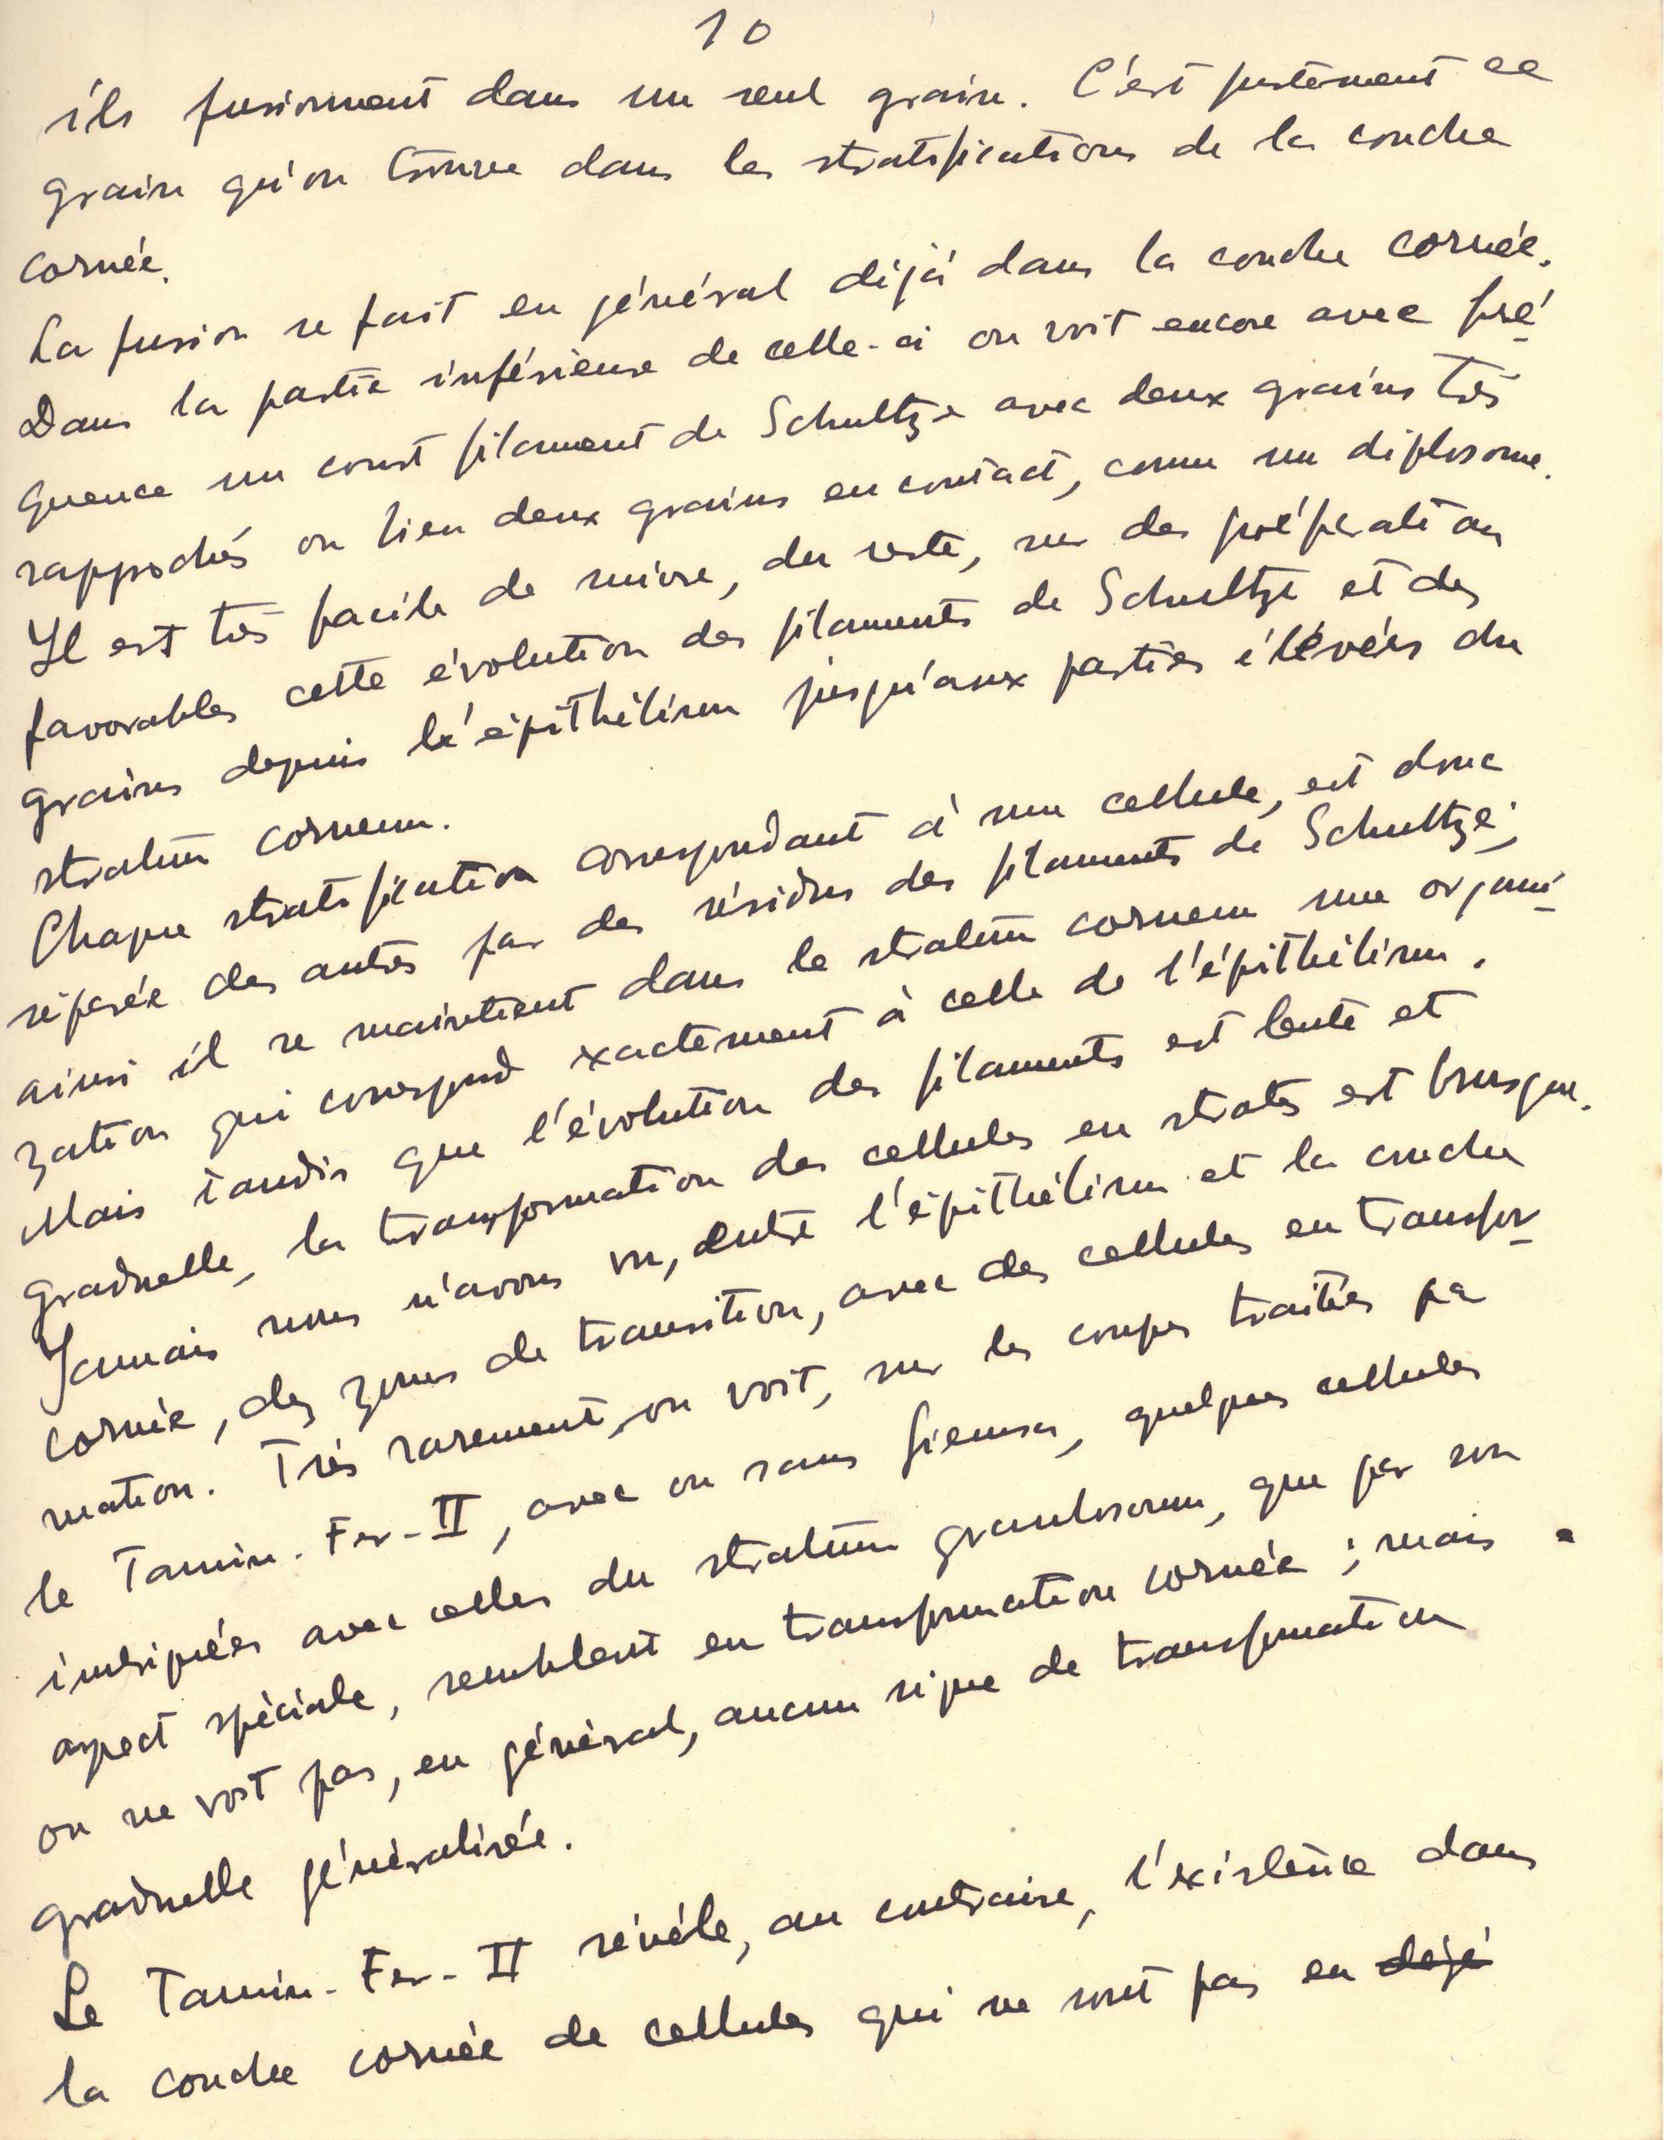 10
ils fusionnent dans un seul grain. C'est justement ce
grain qu'on trouve dans les stratifications de la couche
cornée.
La fusion se fait en général déjà dans la couche cornée.
Dans la partie inférieure de celle-ci on voit encore avec fré-
quence un court filament de Schultze avec deux grains très
rapprochés ou bien deux grains en contact, comme un diplosome.
Il est très facile de suivre, du reste, sur des préparations
favorables cette évolution des filaments de Schultze et des
grains depuis l'épithélium jusqu'aux parties élévées du
stratum corneum.
Chaque stratification correspondant à une cellule, est donc
séparée des autres par des résidus des filaments de Schultze;
ainsi il se maintient dans le stratum corneum une organi-
zation qui correspond exactement à celle de l'épithélium.
Mais tandis que l'évolution des filaments est lente et
graduelle, la transformation des cellules en strates est brusque.
Jamais nous n'avons vu, entre l'épithélium et la couche
cornée, des zones de transition, avec des cellules en transfor-
mation. Très rarement, on voit, sur les coupes traitées par
le Tannin-Fer-II, avec ou sans
quelques cellules
imbriquées avec celles du stratum granulosum, que par son
aspect spéciale, semblent en transformation cornée; mais
on ne voit pas, en général, aucun signe de transformation
graduelle généralisée.
Le Tannin-Fer-II révéle, au contraire, l'existence dans
la couche cornée de cellules qui ne sont pas en déjà